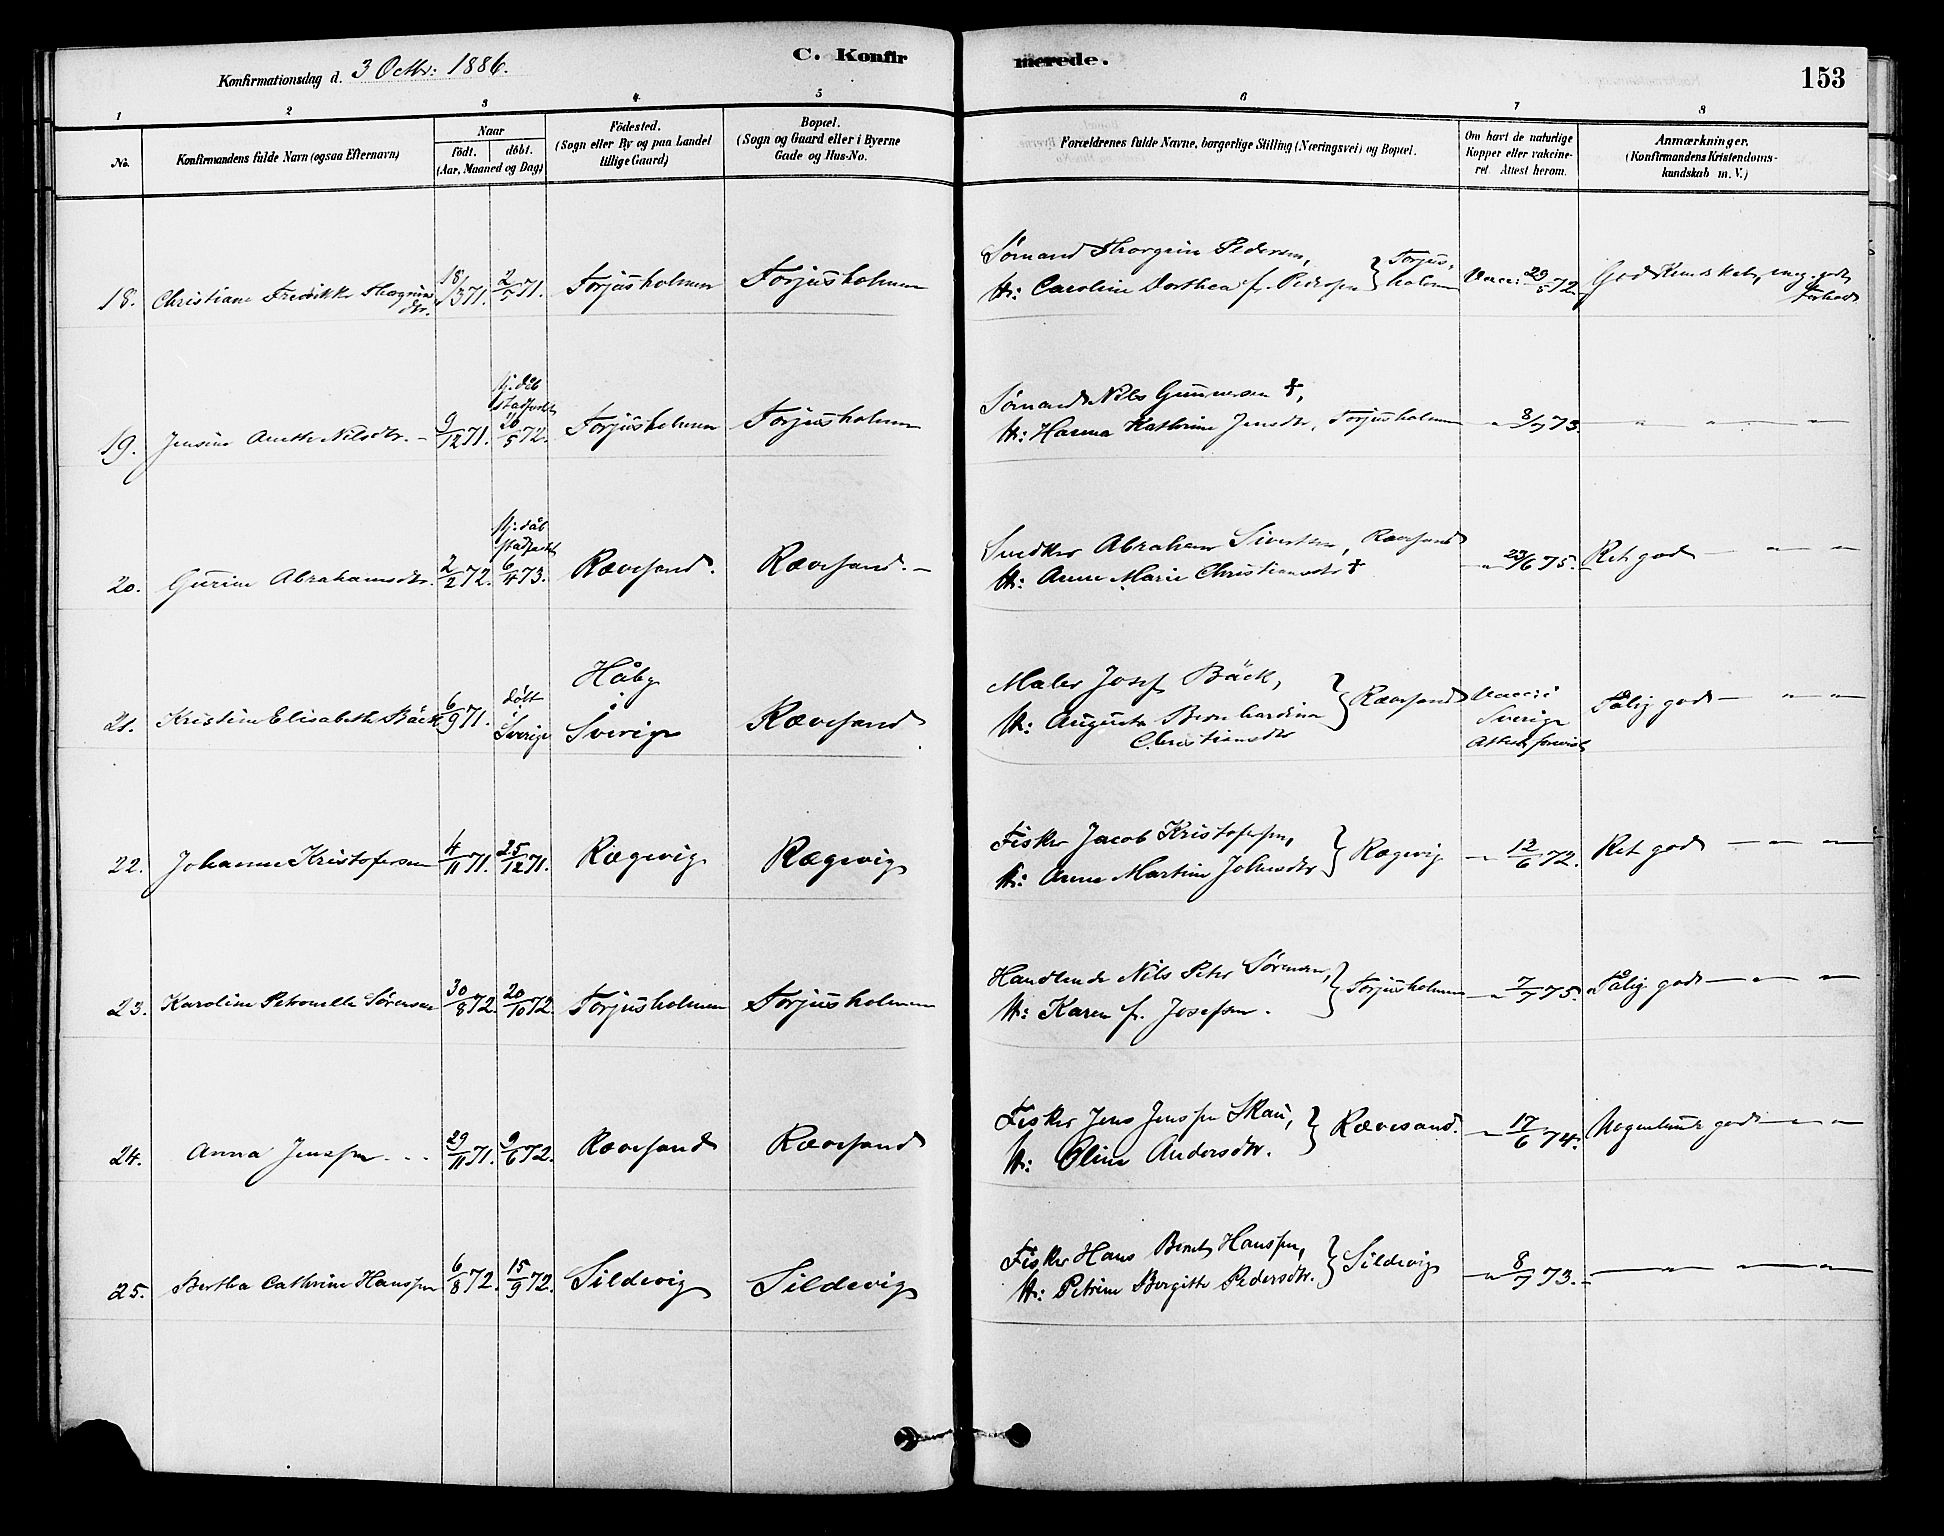 Konfirmationsdag d. 3 Octbr: 1886.
C. Konfirmerede.
153
1 2 3 4 5 6 7 8
No.
Konfirmandens fulde Navn (ogsaa Efternavn)
Naar
födt. döbt.
(Aar, Maaned og Dag)
Födested.
(Sogn eller By og paa Landet
tillige Gaard)
Bopæl.
(Sogn og Gaard eller i Byerne
Gade og Hus-No.
Forældrenes fulde Navne, borgerlige Stilling (Næringsvei) og Bopæl.
Om havt de naturlige
Kopper eller vakcine-
ret. Attest herom.
Anmærkninger.
(Konfirmandens Kristendoms-
kundskab m. V.)
18. Christiane Fredrikke 18/3 71. 2/7 71. Torjusholmen Torjusholmen
Sömand Thorgrim Pedersen,
H: Caroline Dorthea f. Pedersen } Torjus-
holmen
Vacc: 29/5 72. God Kundskab, meg. godt
Forhold
19. Jensine Nilsdtr. 9/12 71. hj. døb
stadfæst
20/5 72. Torjusholmen Torjusholmen
Sömand Nils Gunnersen †,
H: Hanna Kathrine Jensdtr, Torjusholmen
" 8/7 73. " " " "
20. Gurine Abrahamsdtr. 2/2 72. hj. dåb
stadfæstet
6/4 73. Rævesand. Rævesand. –
Snedker Abraham Sivertsen, Rævesand
H: Anne Marie Christiansdtr †
" 23/6 75. Ret god – " – " –
21. Kristine Elisabeth Bäck 6/9 71. døbt
i
Sverige Håby
Sverige Rævesand
Maler Josef Bäck,
H: Augusta Bernhardina
Christiansdtr } Rævesand
Vacc: i
Sverige
Attest forevist Tålig god – " – " –
22. Johanne Kristofersen 4/11 71. 25/12 71. Rægevig Rægevig
Fisker Jacob Kristofersen,
H: Anne Martine Johnsdtr } Rægevig
" 12/6 72. Ret god – " – " –
23. Karoline Petronelle Sörensen 30/8 72. 20/10 72. Torjusholmen Torjusholmen
Handlende Nils Peter Sörensen,
H: Karen f. Josefsen. } Torjusholmen
" 7/7 75. Tålig god – " –
24. Anna Jenssen 29/11 71. 9/6 72. Rævesand Rævesand
Fisker Jens Jenssen Skau,
H: Oline Andersdtr. } Rævesand.
" 17/6 74. Nogenlunde god – " – " –
25. Bertha Cathrine Hanssen 6/8 72. 15/9 72. Sildevig Sildevig
Fisker Hans Bernt Hanssen,
H: Petrine Birgitte Pedersdtr. } Sildevig
" 8/7 73. – " – " – " –